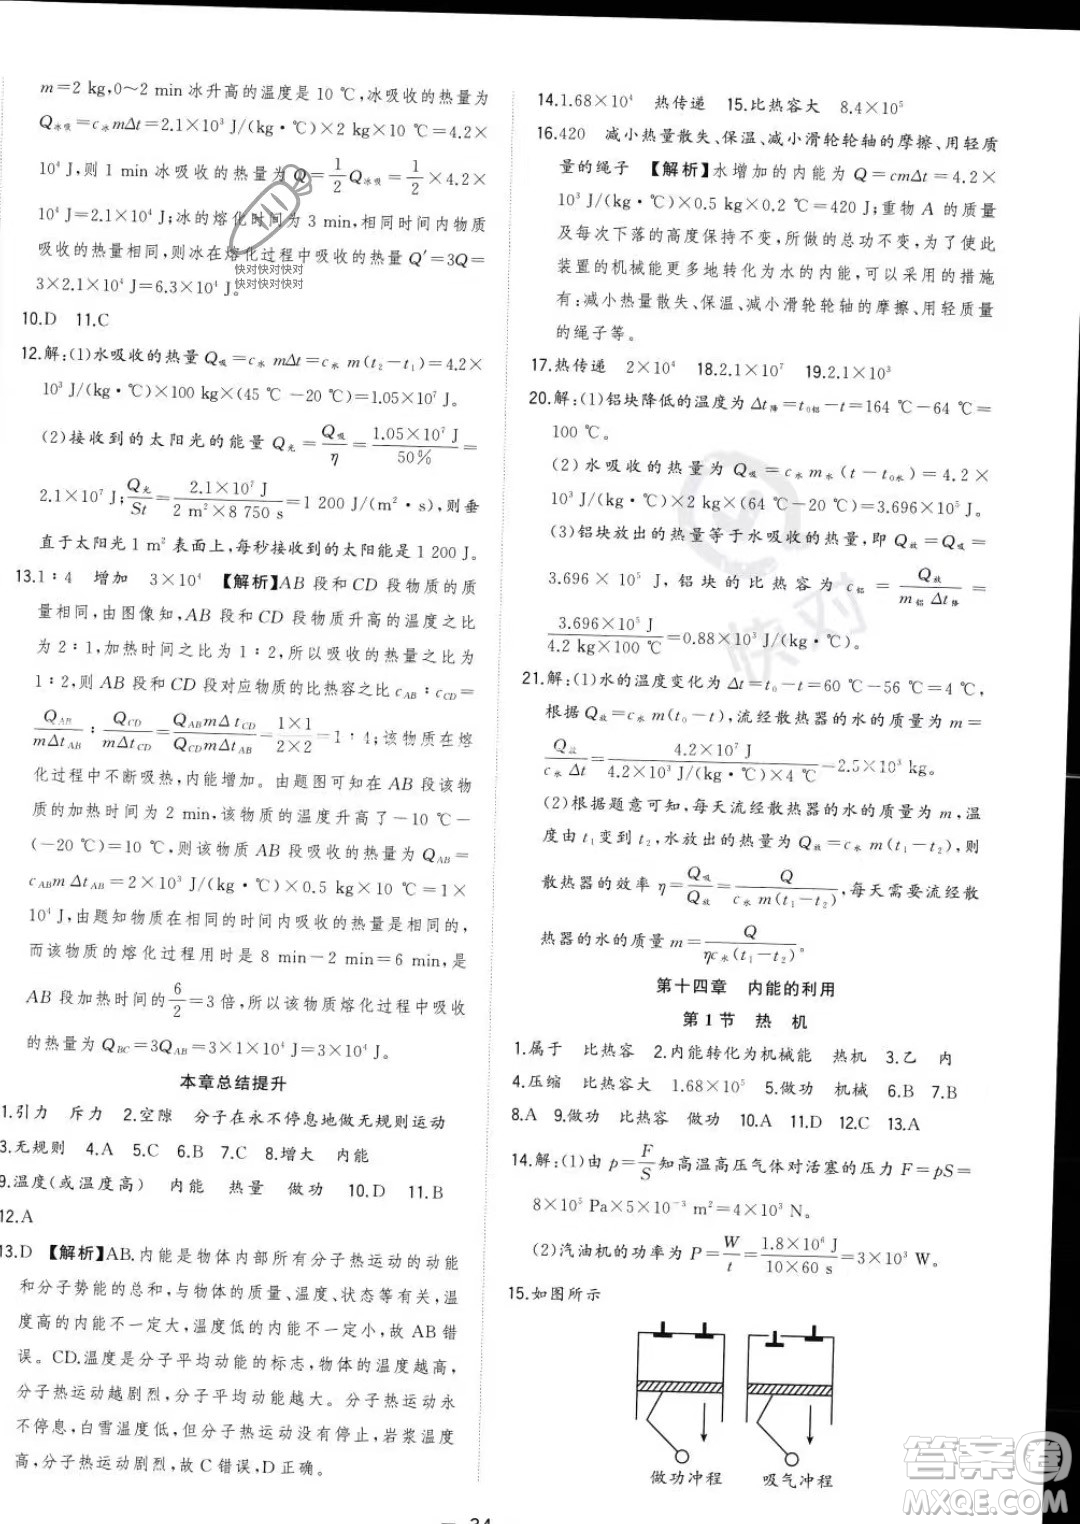 m=2 kg,0～2 min冰升高的温度是10 ℃,冰吸收的热量为
Q冰吸=c冰mΔt=2.1×10³ J/(kg·℃)×2 kg×10 ℃=4.2×
10⁴ J,则1 min冰吸收的热量为Q=1/2Q冰吸=1/2×4.2×
10⁴ J=2.1×10⁴ J,冰的熔化时间为3 min,相同时间内物质
吸收的热量相同,则冰在熔化过程中吸收的热量Q′=3Q=
3×2.1×10⁴ J=6.3×10⁴ J。
10.D 11.C
12.解:(1)水吸收的热量Q吸=c水mΔt=c水m(t₂－t₁)=4.2×
10³ J/(kg·℃)×100 kg×(45 ℃－20 ℃)=1.05×10⁷ J。
(2)接收到的太阳光的能量Q光=Q吸/η=1.05×10⁷ J/50%=
2.1×10⁷ J;Q光/St=2.1×10⁷ J/2 m²×8 750 s=1 200 J/(m²·s),则垂
直于太阳光1 m²表面上,每秒接收到的太阳能是1 200 J。
13.1∶4 增加 3×10⁴ 【解析】AB段和CD段物质的质
量相同,由图像知,AB段和CD段物质升高的温度之比
为2∶1,加热时间之比为1∶2,所以吸收的热量之比为
1∶2,则AB段和CD段对应物质的比热容之比cAB∶cCD=
QAB/mΔtAB∶QCD/mΔtCD=QABmΔtCD/QCDmΔtAB=1×1/2×2=1∶4;该物质在熔
化过程中不断吸热,内能增加。由题图可知,AB段物
质的加热时间为2 min,该物质的温度升高了－10 ℃－
(－20 ℃)=10 ℃,则该物质AB段吸收的热量QAB=
cABmΔtAB=2×10³ J/(kg·℃)×0.5 kg×10 ℃=1×
10⁴ J,由题知物质在相同的时间内吸收的热量是相同的,
而该物质的熔化过程用时是8 min－2 min=6 min,是
AB段加热时间的6/2=3倍,所以该物质熔化过程中吸收
的热量为QBC=3QAB=3×1×10⁴ J=3×10⁴ J。
本章总结提升
1.引力 斥力 2.空隙 分子在永不停息地做无规则运动
3.无规则 4.A 5.C 6.B 7.C 8.增大 内能
9.温度(或温度高) 内能 热量 做功 10.D 11.B
12.A
13.D 【解析】AB.内能是物体内部所有分子热运动的动能
和分子势能的总和,与物体的质量、温度、状态等有关,温
度高的内能不一定大,温度低的内能不一定小,故AB错
误。CD.温度是分子平均动能的标志,物体的温度越高,
分子热运动越剧烈,分子平均动能越大。分子热运动永
不停息,白雪温度低,分子热运动不会停止,岩浆温度
高,分子热运动剧烈,故C错误,D正确。
14.1.68×10⁴ 热传递 15.比热容大 8.4×10⁵
16.420 减小热量散失、保温、减小滑轮轮轴的摩擦、用轻质
量的绳子 【解析】水增加的内能为Q=cmΔt=4.2×
10³ J/(kg·℃)×0.5 kg×0.2 ℃=420 J;重物A的质量
及每次下落的高度保持不变,所做的总功不变,为了使此
装置的机械能更多地转化为水的内能,可采用的措施
有:减小热量散失、保温、减小滑轮轮轴的摩擦、用轻质量
的绳子等。
17.热传递 2×10⁴ 18.2.1×10⁷ 19.2.1×10³
20.解:(1)铝块降低的温度为Δt降=t₀铝－t=164 ℃－64 ℃=
100 ℃。
(2)水吸收的热量为Q吸=c水m水(t－t₀水)=4.2×
10³ J/(kg·℃)×2 kg×(64 ℃－20 ℃)=3.696×10⁵ J。
(3)铝块放出的热量等于水吸收的热量,即Q放=Q吸=
3.696×10⁵ J,铝块的比热容为c铝=Q放/m铝Δt降=
3.696×10⁵ J/4.2 kg×100 ℃=0.88×10³ J/(kg·℃)。
21.解:(1)水的温度变化为Δt=t₀－t=60 ℃－56 ℃=4 ℃,
根据Q放=c水m(t₀－t),流经散热器的水的质量m=
Q放/c水Δt=4.2×10⁷ J/4.2×10³ J/(kg·℃)×4 ℃=2.5×10³ kg。
(2)根据题意可知,每天流经散热器的水的质量为m,温
度由t₁变到t₂,水放出的热量为Q放=c水m(t₁－t₂),则
散热器的效率η=Q吸/Q放=Q/c水m(t₁－t₂),每天需要流经散
热器的水的质量m=Q/ηc水(t₁－t₂)。
第十四章 内能的利用
第1节 热 机
1.属于 比热容 2.内能转化为机械能 热机 3.乙 内
4.压缩 比热容大 1.68×10⁵ 5.做功 机械 6.B 7.B
8.A 9.做功 比热容 做功 10.A 11.D 12.C 13.A
14.解:(1)由p=F/S知高温高压气体对活塞的压力F=pS=
8×10⁵ Pa×5×10⁻³ m²=4×10³ N。
(2)汽油机的功率为P=W/t=1.8×10⁶ J/10×60 s=3×10³ W。
15.如图所示
做功冲程 吸气冲程
快对快对快对
快对快对快对
快对
答案圈
MXQE.COM